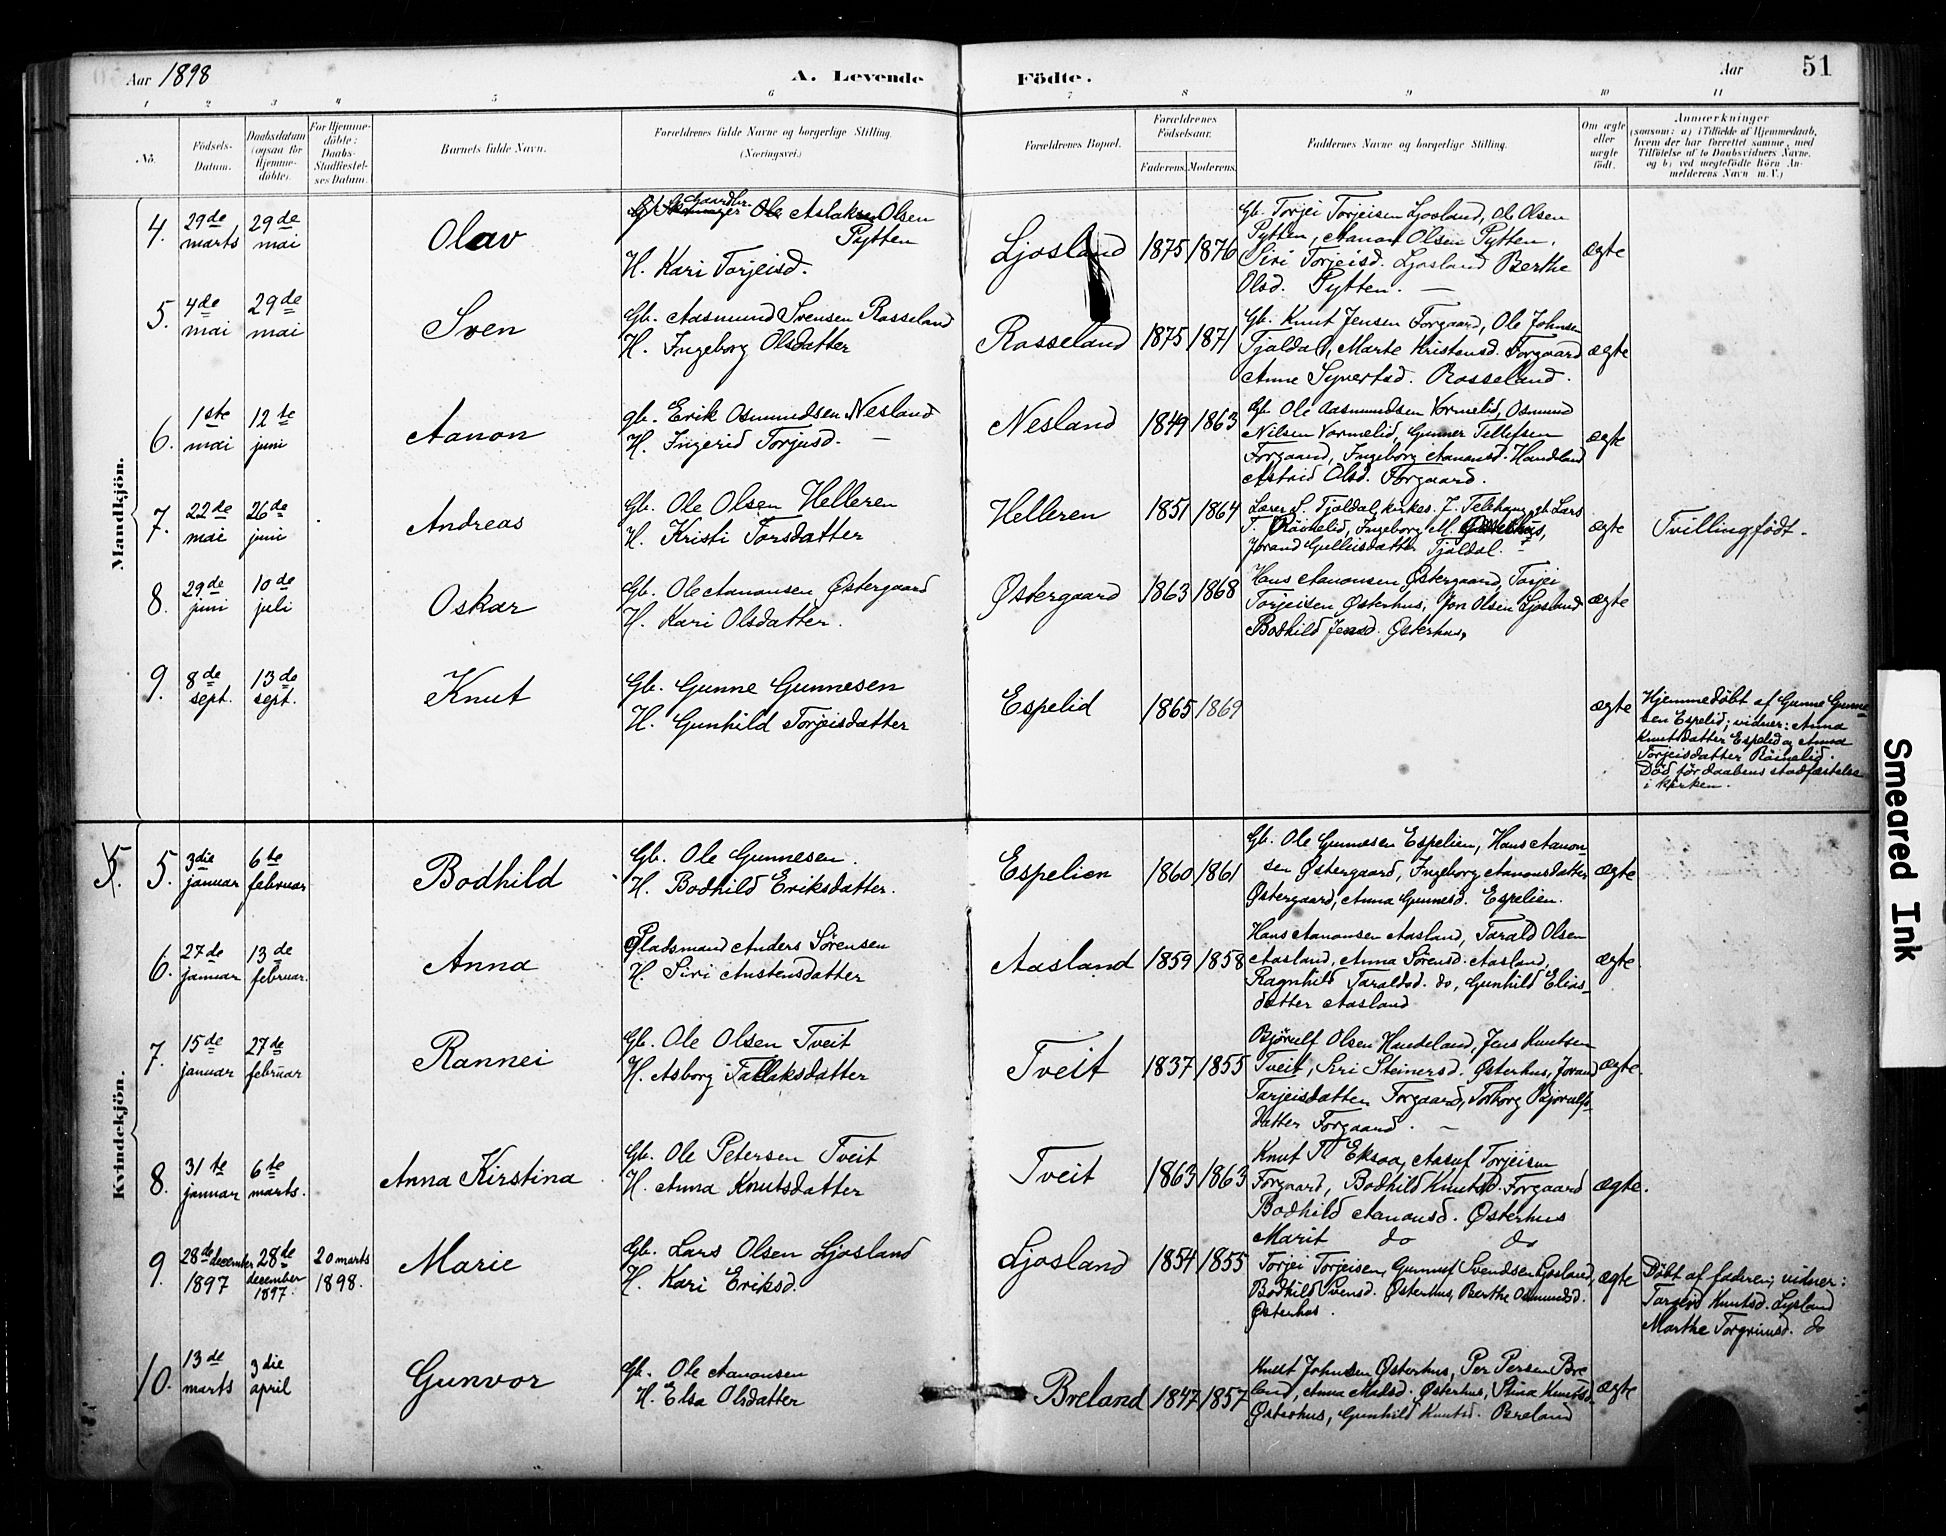 Aar 1898
A. Levende Födte.
Aar 51
1 2 3 4 5 6 7 8 9 10 11
No.
Födsels-
Datum.
Daabsdatum
(ogsaa for
Hjemme-
döbte).
For Hjemme-
döbte:
Daabs-
Stadfæstel-
ses Datum.
Barnets fulde Navn.
Forældrenes fulde Navne og borgerlige Stilling.
(Næringsvei.)
Forældrenes Bopæl.
Forældrenes
Födselsaar.
Faderens. Moderens.
Faddernes Navne og borgerlige Stilling.
Om ægte
eller
uægte
födt.
Anmærkninger
(saasom: a) i Tilfælde af Hjemmedaab,
hvem der har forrettet samme, med
Tilföielse af to Daabsvidners Navne,
og b) ved uægtefödte Börn An-
melderens Navn m. V.)
Mandkjön.
4.
29de
marts
29de
mai
Olav
Gaardbr.
Ole Aslaksen Olsen
Pytten
H. Kari Torjeisd.
Ljosland
1875 1876
Gb. Torjei Torjeisen Ljosland, Ole Olsen
Pytten, Aanon Olsen Pytten,
Siri Torjeisd. Ljosland Berthe
Olsd. Pytten. —
ægte
5.
4de
mai
29de
mai
Sven
Gb. Aasmund Svensen Rosseland
H. Ingeborg Olsdatter
Rosseland
1875 1871
Gb. Knut Jensen Forgaard, Ole Johnsen
Tjaldal, Marte Kristensd. Forgaard
Anne Syvertsd. Rosseland.
ægte
6.
1ste
mai
12te
juni
Aanon
gb. Erik Osmundsen Nesland
H. Ingerid Torjusd. —
Nesland
1849 1863
Gb. Ole Aasmundsen Vormelid, Osmund
Nilsen Vormelid, Gunner Tellefsen
Forgaard, Ingeborg Aanonsd. Handeland
Astrid Olsd. Forgaard.
ægte
7.
22de
mai
26de
juni
Andreas
Gb. Ole Olsen Helleren
H. Kristi Torsdatter
Helleren
1851 1864
Lærer S. Tjaldal, kirkes. J. Lars
T. Röinelid, Ingeborg M. Østerhus,
Jorand Gulleisdatter Tjaldal.
ægte
Tvillingfödt.
8.
29de
juni
10de
juli
Oskar
Gb. Ole Aanonsen Østergaard
H. Kari Olsdatter.
Østergaard
1863 1868
Hans Aanonsen Østergaard, Torjei
Torjeisen Østerhus, Jon Olsen Ljosland
Bodhild Jensd. Østerhus,
ægte
9.
8de
sept.
13de
sept.
Knut
Gb. Gunne Gunnesen
H. Gunhild Torjeisdatter
Espelid
1865 1869
ægte
Hjemmedöbt af Gunne Gunne-
sen Espelid; vidner: Anna
Knutsdatter Espelid og Anna
Torjeisdatter Röinelid.
Död för daabens stadfæstelse
i kirken.
Kvindekjön.
5.
5.
3die
januar
6te
februar
Bodhild
Gb. Ole Gunnesen.
H. Bodhild Eriksdatter.
Espelien
1860 1861
Gb. Ole Gunnesen Espelien, Hans Aanon
sen Østergaard, Ingeborg Aanonsdatter
Østergaard, Anna Gunnesd. Espelien.
ægte
6.
27de
januar
13de
februar.
Anna
Pladsmand Anders Sörensen
H. Siri Austensdatter
Aasland
1859 1858
Hans Aanonsen Aasland, Tarald Olsen
Aasland, Anna Sörensd. Aasland,
Ragnhild Taraldsd. do, Gunhild Elias-
datter Aasland
ægte
7.
15de
januar
27de
februar
Rannei
Gb. Ole Olsen Tveit
H. Asborg Tallaksdatter
Tveit
1837 1855
Bjørulf Olsen Handeland, Jens Knutsen
Tveit, Siri Steinersd. Østerhus, Jorand
Tarjeisdatter Forgaard, Torborg Bjorulfs-
datter Forgaard. —
ægte.
8.
31te
januar
6te
marts.
Anna Kirstina
Gb. Ole Petersen Tveit
H. Anna Knutsdatter
Tveit
1863 1863
Knut T. Eksaa, Torjeisen
Forgaard, Bodhild Knutsd. Forgaard
Bodhild Aanonsd. Østerhus
Marit do do
ægte.
9.
28de december
1897
28de
december
1897.
20 marts
1898.
Marie
Gb. Lars Olsen Ljosland
H. Kari Eriksd.
Ljosland
1854 1855
Torjei Torjeisen, Gunnuf Svendsen Ljosland,
Bodhild Svensd. Østerhus, Berthe Osmundsd.
Østerhus.
ægte
Döbt af faderen; vidner:
Knutsd. Ljosland
Marthe Torgrimsd. do
10.
13de
marts
3die
april
Gunvor
Gb. Ole Aanonsen
H. Elsa Olsdatter
Breland
1847 1857
Knut Johnsen Østerhus, Per Persen Bre
land, Anna Madsd. Østerhus, Stina Knutsd.
Østerhus, Gunhild Knutsd. Breland
ægte
Smeared Ink